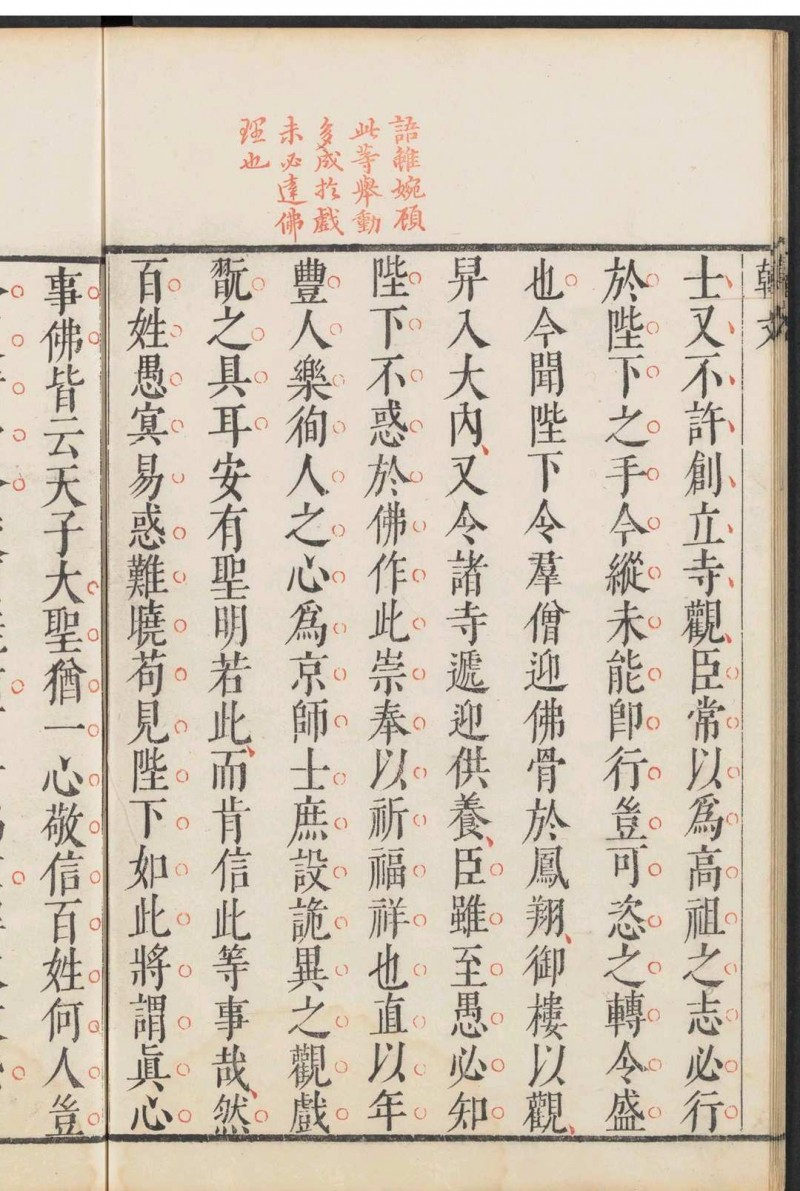 語雖婉頎
此等舉動
多成於戲
未必達佛
理也
韓文
士又不許創立寺觀臣常以爲高祖之志必行
於陛下之手今縱未能卽行豈可恣之轉令盛
也今聞陛下令羣僧迎佛骨於鳳翔御樓以觀
舁入大內又令諸寺遞迎供養臣雖至愚必知
陛下不惑於佛作此崇奉以祈福祥也直以年
豐人樂徇人之心爲京師士庶設詭異之觀戲
翫之具耳安有聖明若此而肯信此等事哉然
百姓愚㝠易惑難曉苟見陛下如此將謂眞心
事佛皆云天子大聖猶一心敬信百姓何人豈